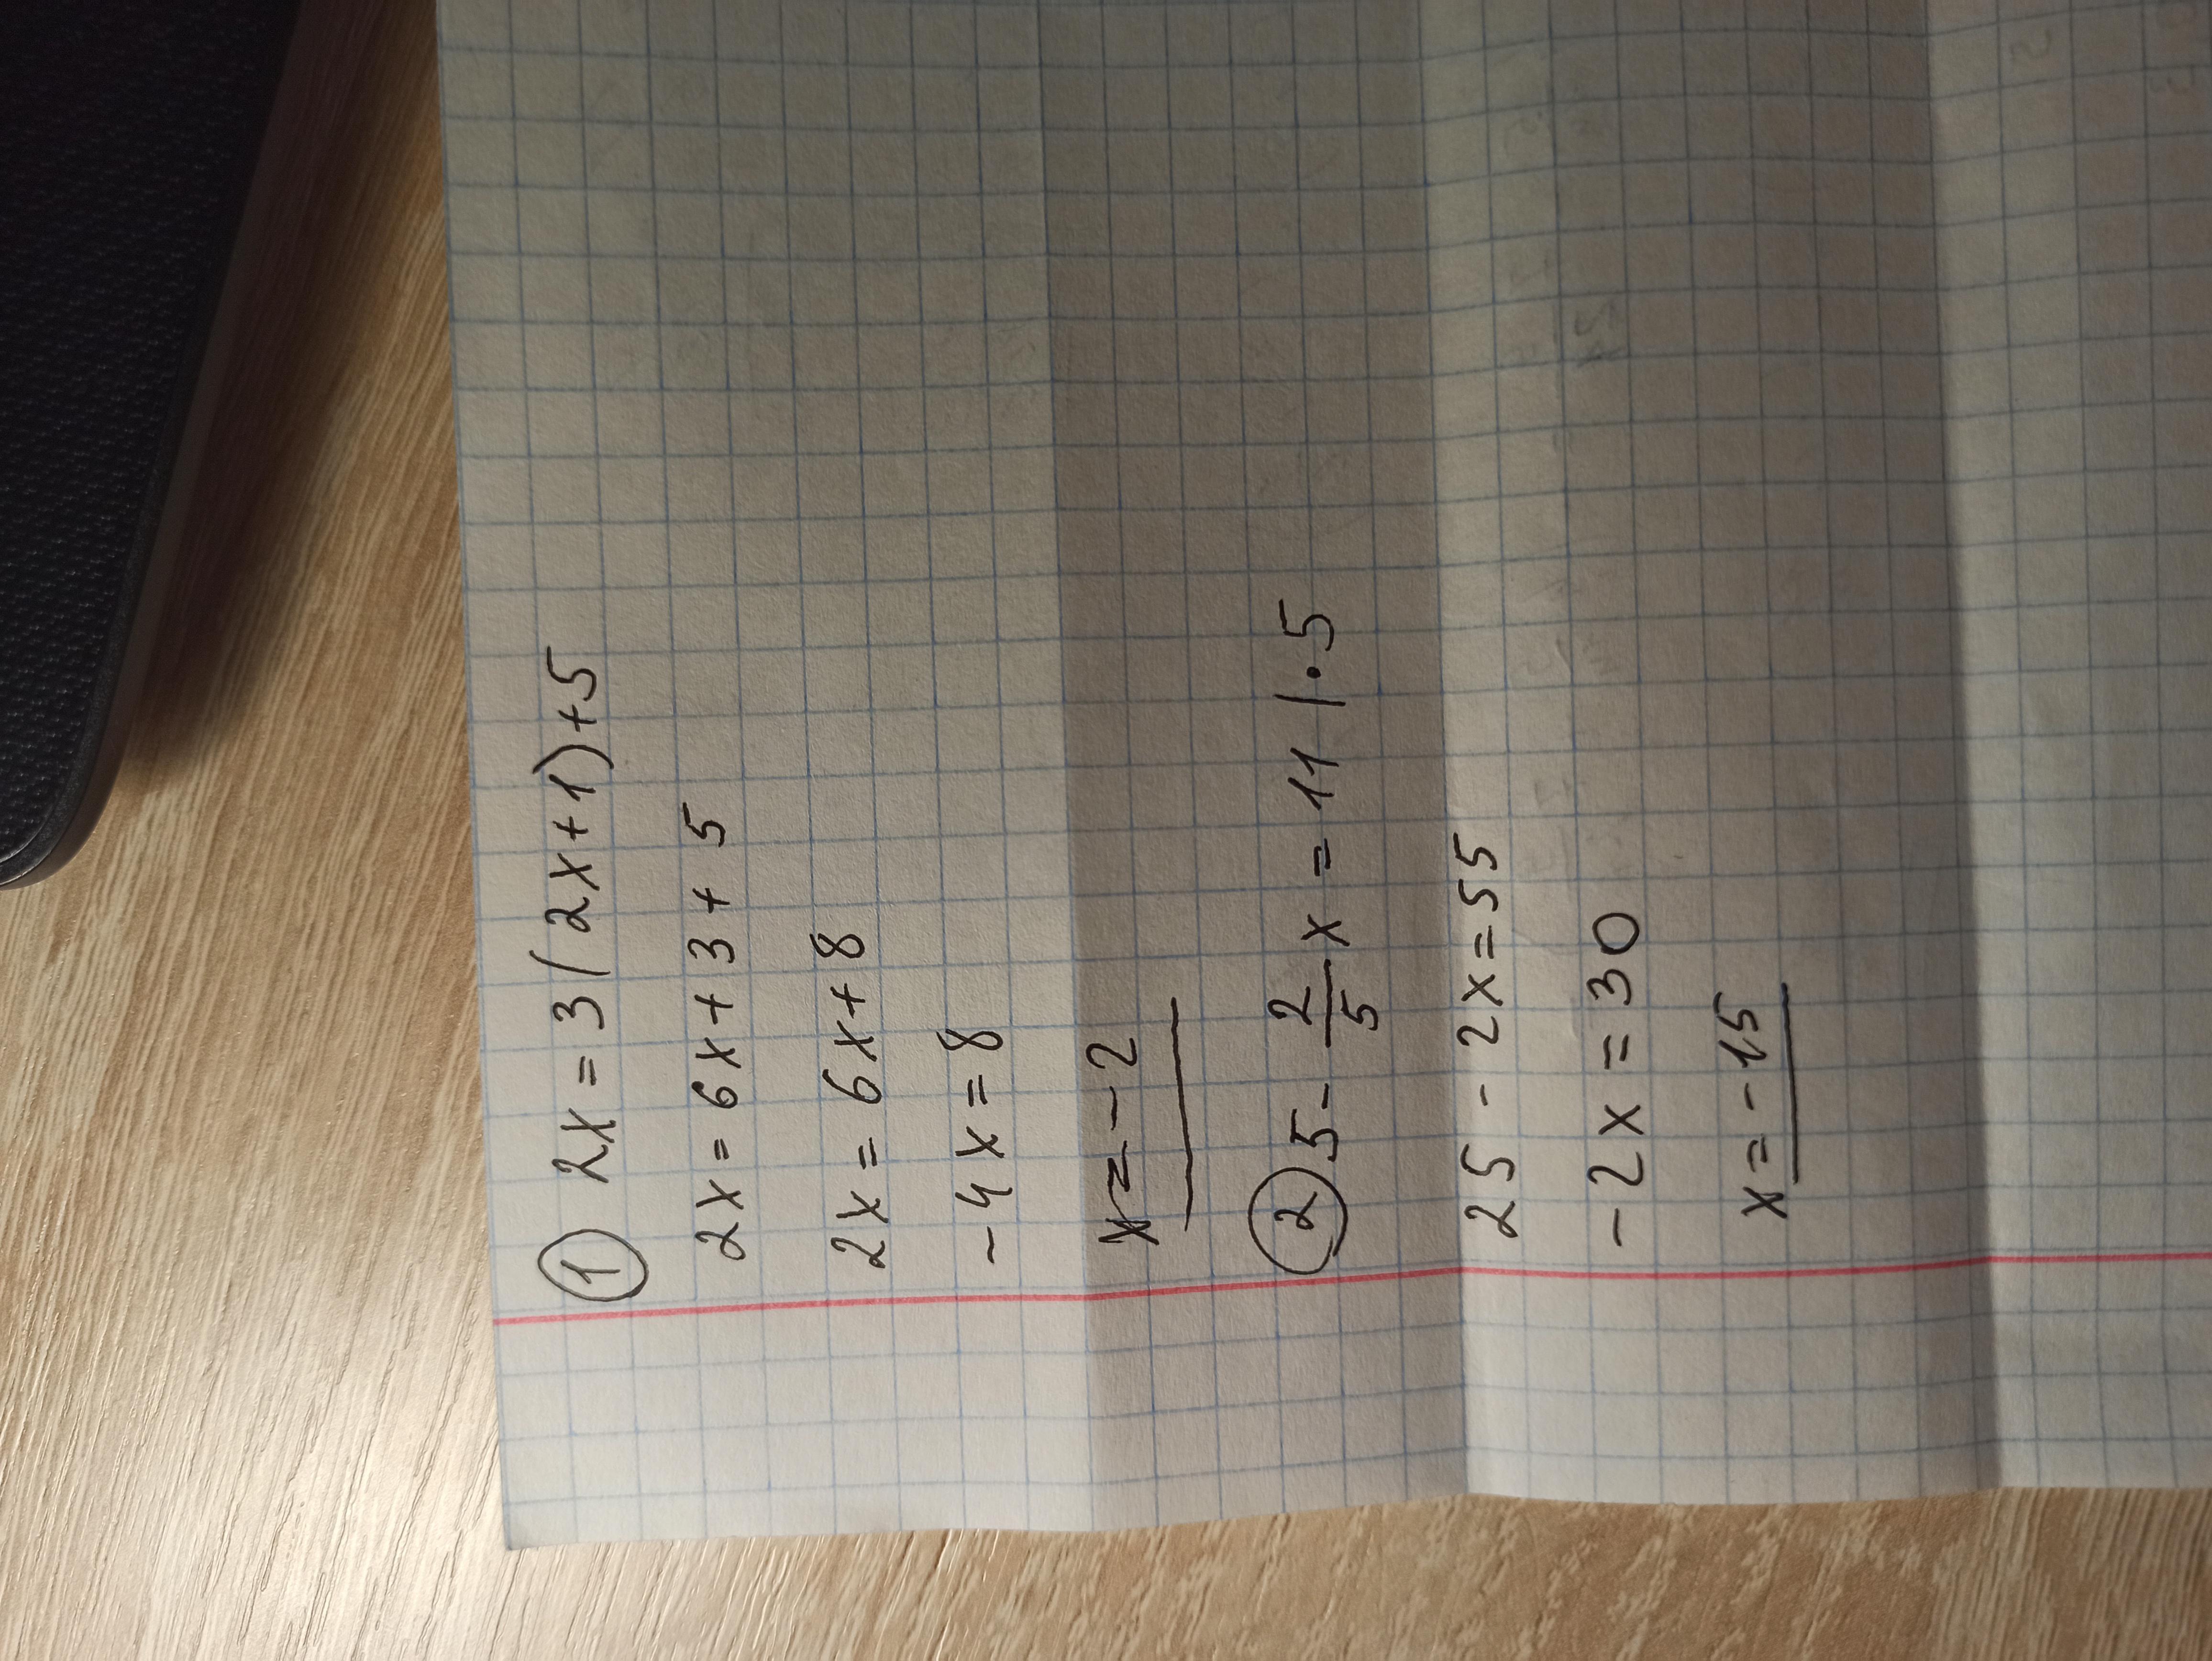 ① 2x = 3(2x+1)+5
2x = 6x+3+5
2x = 6x+8
-4x = 8
x = -2
② 5 - 2/5 x = 11 | · 5
25 - 2x = 55
-2x = 30
x = -15